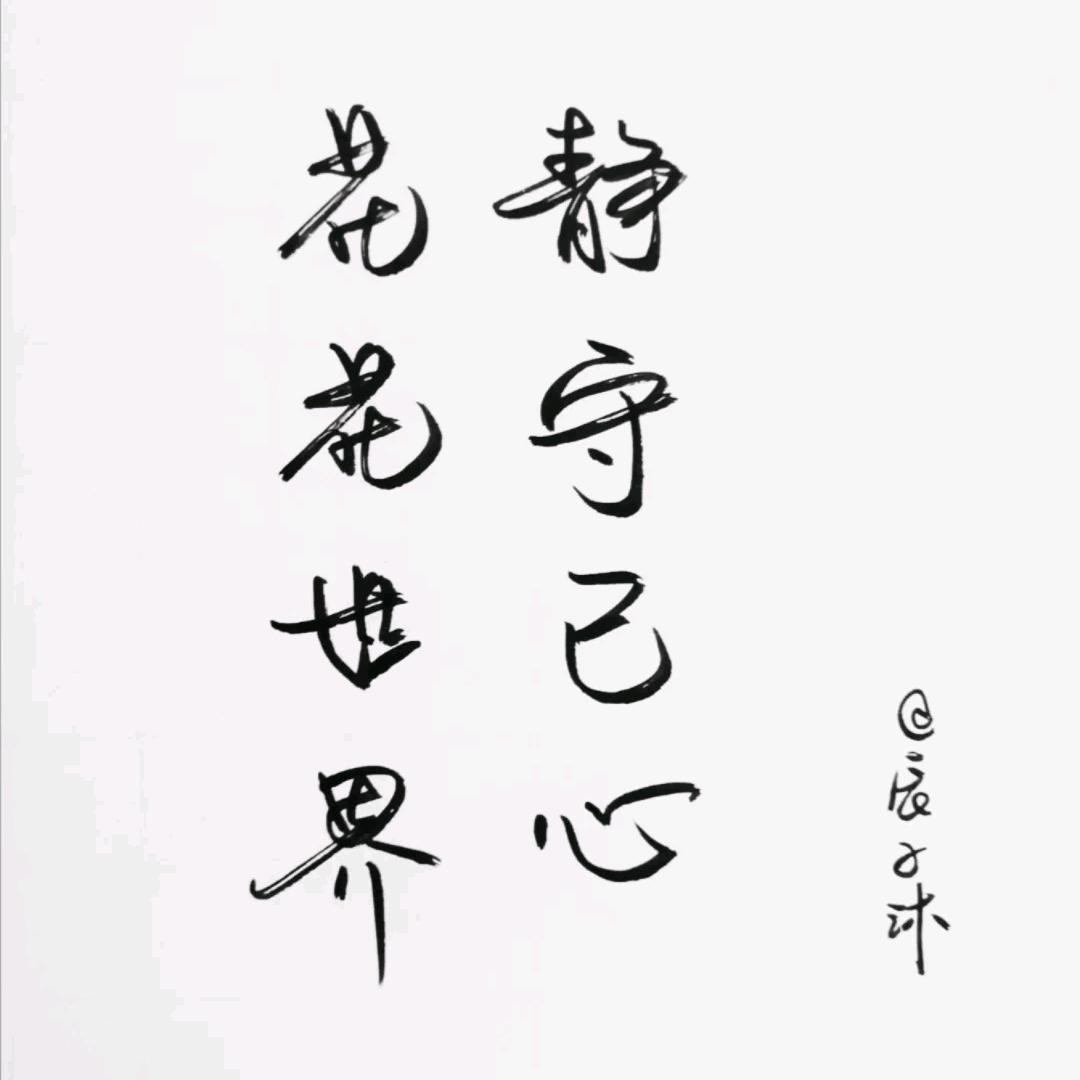 花花世界
静守己心
@辰子沐